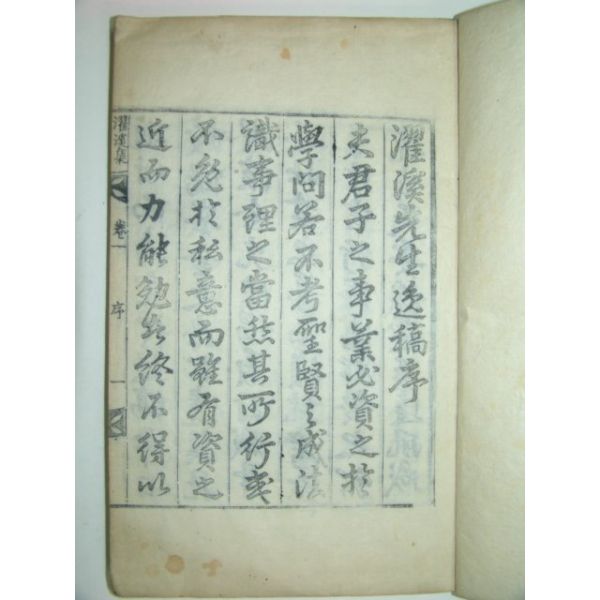 濯溪先生逸稿序
夫君子之事業必資之於
學問若不考聖賢之成法
識事理之當然其所行或
不免於私意而雖有資之
近而力能勉者終不得以
濯溪集
卷一
序
一